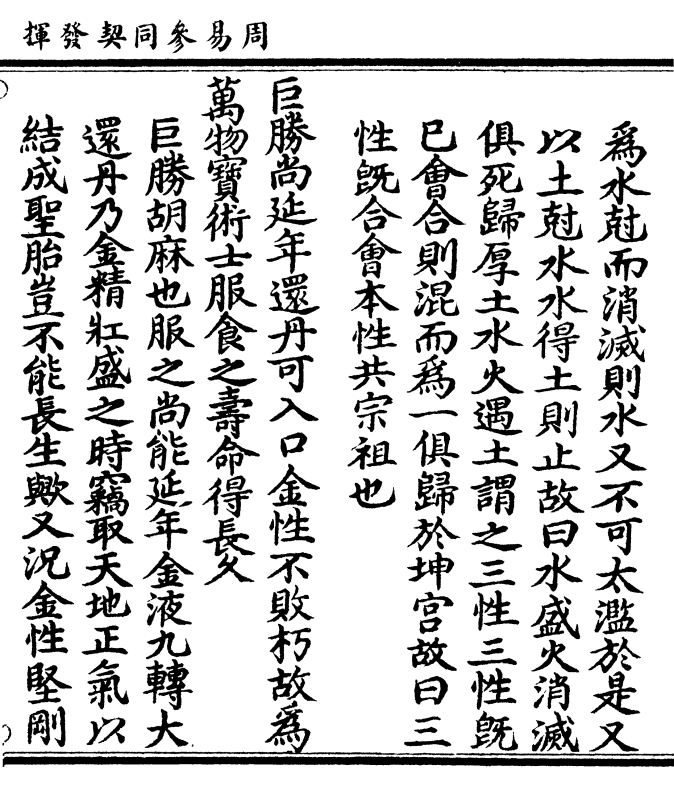 周易參同契發揮
爲水尅而消滅則水又不可太濫於是又
以土尅水水得土則止故曰水盛火消滅
俱死歸厚土水火遇土謂之三性三性旣
已會合則混而爲一俱歸於坤宫故曰三
性旣合會本性共宗祖也
巨勝尚延年還丹可入口金性不敗朽故爲
萬物寶術士服食之壽命得長久
巨勝胡麻也服之尚能延年金液九轉大
還丹乃金精壯盛之時竊取天地正氣以
結成聖胎豈不能長生歟又况金性堅剛